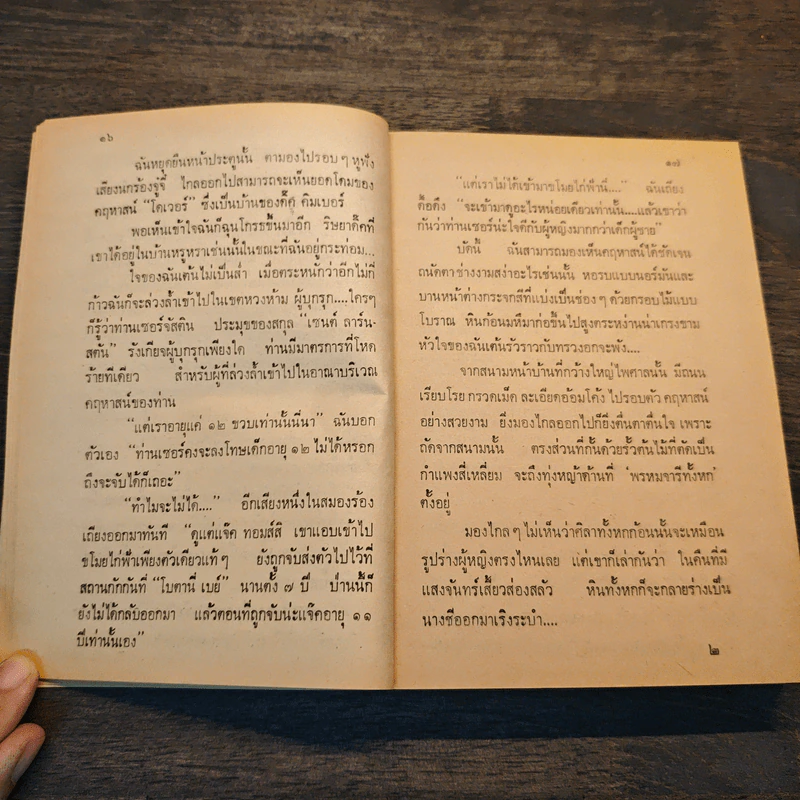 ๑๖
ฉันหยุดยืนหน้าประตูนั้น ตามองไปรอบ ๆ หูฟัง
เสียงนกร้องจู๋จี๋ ไกลออกไปสามารถจะเห็นยอดโดมของ
คฤหาสน์ “โคเวอร์” ซึ่งเป็นบ้านของดิ๊คี้ คิมเบอร์
พอเห็นเข้าใจฉันก็ฉุนโกรธขึ้นมาอีก ริษยาดิ๊คที่
เขาได้อยู่ในบ้านหรูหราเช่นนั้นในขณะที่ฉันอยู่กระท่อม...
ใจของฉันเต้นไม่เป็นส่ำ เมื่อตระหนักว่าอีกไม่กี่
ก้าวฉันก็จะล่วงล้ำเข้าไปในเขตหวงห้าม ผู้บุกรุก....ใครๆ
ก็รู้ว่าท่านเซอร์จัสติน ประมุขของสกุล “เซนต์ ลาร์น-
สตัน” รังเกียจผู้บุกรุกเพียงใด ท่านมีมาตรการที่โหด
ร้ายทีเดียว สำหรับผู้ที่ล่วงล้ำเข้าไปในอาณาบริเวณ
คฤหาสน์ของท่าน
“แต่เราอายุแค่ ๑๒ ขวบเท่านั้นนี่นา” ฉันบอก
ตัวเอง “ท่านเซอร์คงจะลงโทษเด็กอายุ ๑๒ ไม่ได้หรอก
ถึงจะจับได้ก็เถอะ”
“ทำไมจะไม่ได้....” อีกเสียงหนึ่งในสมองร้อง
เถียงออกมาทันที “ดูแต่แจ๊ค ทอมส์สิ เขาแอบเข้าไป
ขโมยไก่ฟ้าเพียงตัวเดียวแท้ๆ ยังถูกจับส่งตัวไปไว้ที่
สถานกักกันที่ “โบตานี่ เบย์” นานตั้ง ๗ ปี ป่านนี้ก็
ยังไม่ได้กลับออกมา แล้วตอนที่ถูกจับน่ะแจ๊คอายุ ๑๑
ปีเท่านั้นเอง”
๑๗
“แต่เราไม่ได้เข้ามาขโมยไก่ฟ้านี่....” ฉันเถียง
ดื้อดึง “จะเข้ามาดูอะไรหน่อยเดียวเท่านั้น....แล้วเขาว่า
กันว่าท่านเซอร์น่ะใจดีกับผู้หญิงมากกว่าเด็กผู้ชาย”
บัดนี้ ฉันสามารถมองเห็นคฤหาสน์ได้ชัดเจน
ถนัดตา ช่างงามสง่าอะไรเช่นนั้น หอรบแบบนอร์มันและ
บานหน้าต่างกระจกสีที่แบ่งเป็นช่อง ๆ ด้วยกรอบไม้แบบ
โบราณ หินก้อนมหึมาก่อขึ้นไปสูงตระหง่านน่าเกรงขาม
หัวใจของฉันเต้นรัวราวกับทรวงอกจะพัง....
จากสนามหน้าบ้านที่กว้างใหญ่ไพศาลนั้น มีถนน
เรียบโรย กรวดเม็ด ละเอียดอ้อมโค้ง ไปรอบตัว คฤหาสน์
อย่างสวยงาม ยิ่งมองไกลออกไปก็ยิ่งตื่นตาตื่นใจ เพราะ
ถัดจากสนามนั้น ตรงส่วนที่กั้นด้วยรั้วต้นไม้ที่ตัดเป็น
กำแพงสี่เหลี่ยม จะถึงทุ่งหญ้าด้านที่ ‘พรหมจารีทั้งหก’
ตั้งอยู่
มองไกล ๆ ไม่เห็นว่าศิลาทั้งหกก้อนนั้นจะเหมือน
รูปร่างผู้หญิงตรงไหนเลย แต่เขาก็เล่ากันว่า ในคืนที่มี
แสงจันทร์เสี้ยวส่องสลัว หินทั้งหกก็จะกลายร่างเป็น
นางชีออกมาเริงระบำ....
๒